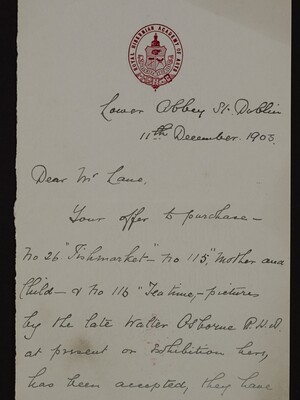 ROYAL HIBERNIAN ACADEMY OF ARTS
Lower Abbey St. Dublin
11th December. 1903.
Dear Mr Lane,
Your offer to purchase –
No 26 "Fishmarket" – No 115, "Mother and
Child – & No 116 "Teatime, – pictures
by the late Walter Osborne R.H.A.
at present on Exhibition here,
has been accepted, they have